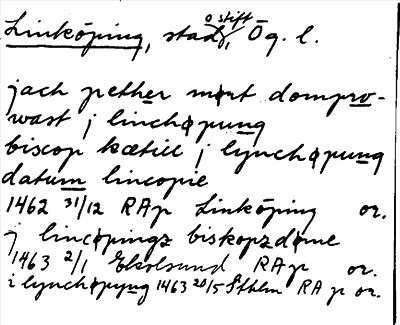 Linköping, stad, o stift Ög. l.
jach pether mört dompro-
wast j linchøpung
biscop kætill j lynchøpung
datum lincopie
1462 31/12 RAp Linköping or.
j lincøpingz biskopzdøme
1463 2/1 Ekolsund RAp or.
i lynchøpung 1463 20/5 Sthlm RAp or.